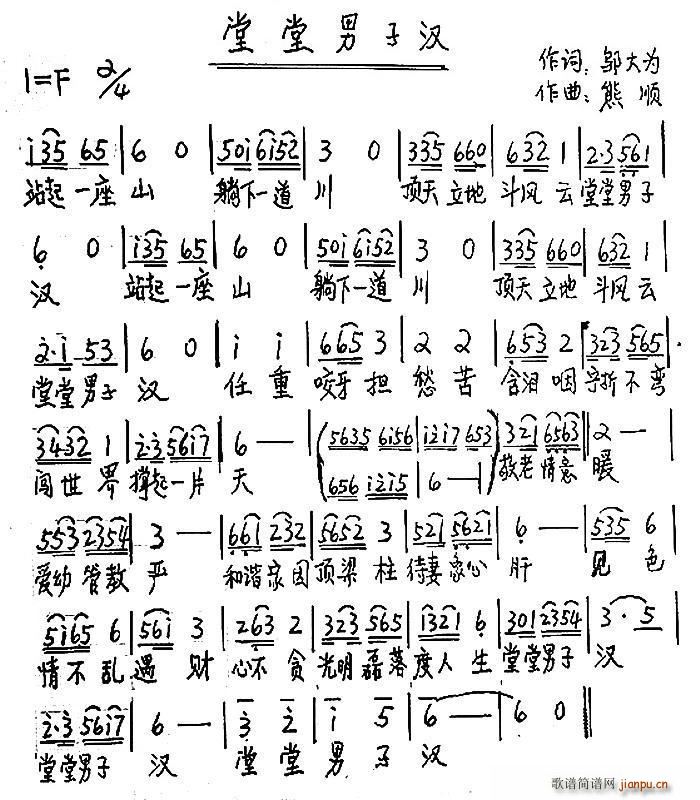 堂堂男子汉
1=F 2/4
作词：邬大为
作曲：熊顺
i35 65 | 6 0 | 50i 6i52 | 3 0 | 335 660 | 632 1 | 2·3 561
站起一座山 躺下一道川 顶天立地 斗风云 堂堂男子
6 0 | i35 65 | 6 0 | 50i 6i52 | 3 0 | 335 660 | 632 1
汉 站起一座山 躺下一道川 顶天立地 斗风云
2·i 53 | 6 0 | i i | 665 3 | 2 2 | 653 2 | 323 565
堂堂男子汉 任重 咬牙担愁苦 含泪咽 宁折不弯
3432 1 | 2·3 56i7 | 6 — | (5635 6i56 | i2i7 653 | 321 6563 || 2 —
656 i2i5 | 6 —)
闯世界 撑起一片天 敬老情意暖
553 2354 | 3 — | 661 232 | 5652 3 | 521 5621 | 6 — | 535 6
爱幼管教严 和谐家园顶梁柱 待妻家心肝 见色
5i65 6 | 56i 3 | 263 2 | 323 565 | 1321 6 | 301 2354 | 3 · 5
情不乱 遇财心不贪 光明磊落度人生 堂堂男子汉
2·3 56i7 | 6 — | 3 2 | i 5 | 6 — | 6 0 ||
堂堂男子汉 堂堂男子汉
歌谱简谱网
jianpu.cn